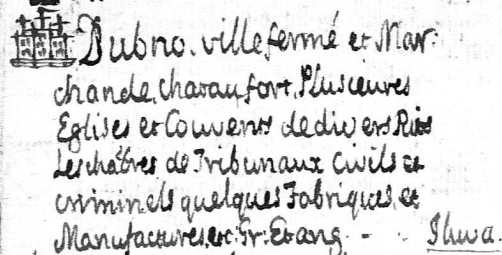 Dubno. ville fermé et Mar:
chande, chataufort, Plusieures
Eglises et Couvents de divers Rites
Les chābres de Tribunaux Civils et
criminels quelques Fabriques, et
Manufactures, etc: Gr: Etang - - Ikwa.